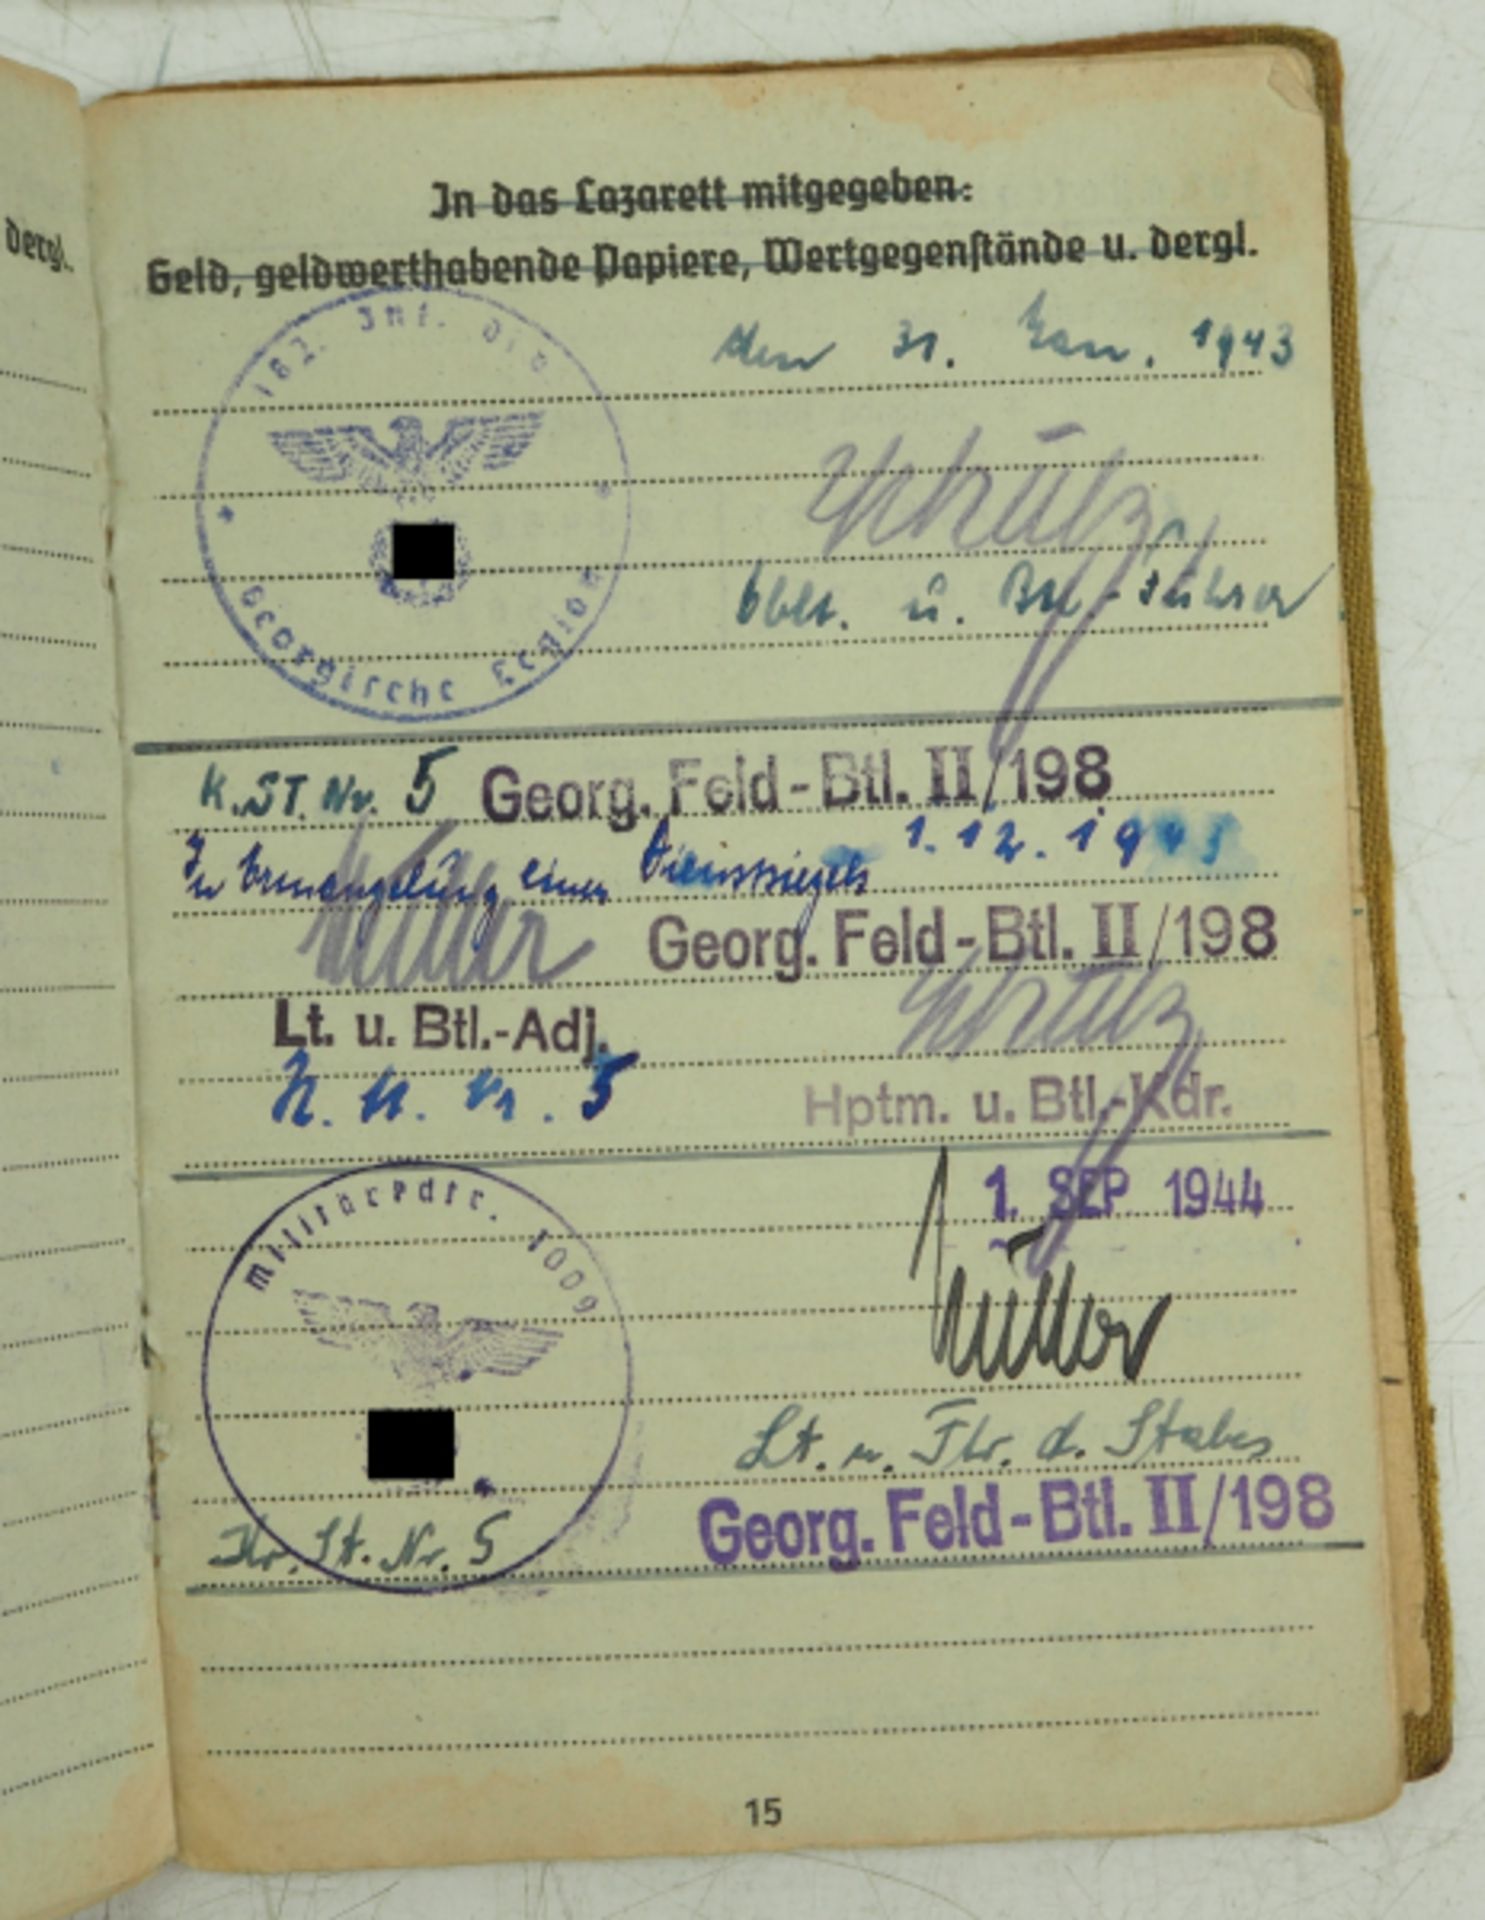 dergl.
In das Lazarett mitgegeben:
Geld, geldwerthabende Papiere, Wertgegenstände u. dergl.
162. Inf. Div.
Georgische Legion
den 31. Jan. 1943
Schütz
Oblt. u. Btl.-Führer
K.ST.Nr. 5 Georg. Feld-Btl. II/198
In Ermangelung eines Dienstsiegels 1.12.1943
Müller Georg. Feld-Btl. II/198
Schütz
Lt. u. Btl.-Adj.
Nr. 5 Hptm. u. Btl.-Kdr.
1. SEP 1944
1009
Müller
Lt. u. Fhr. d. Stabes
Kr. St. Nr. 5 Georg. Feld-Btl. II/198
15